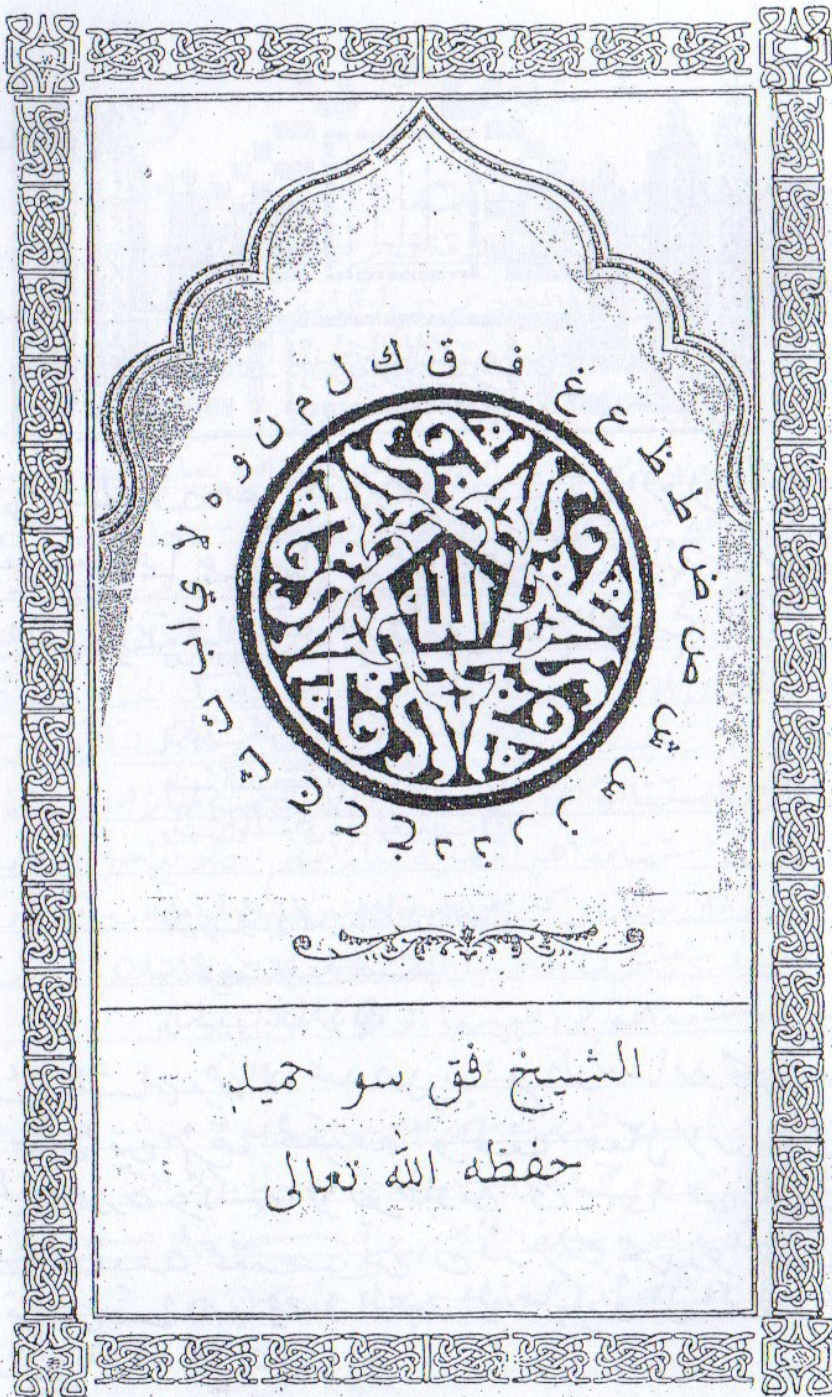 ا ب ت ث ج ح خ د ذ ر ز س ش ص ض ط ظ ع غ ف ق ك ل م ن و ه لا ي
الله
الشيخ فق سو حميد
حفظه الله تعالى